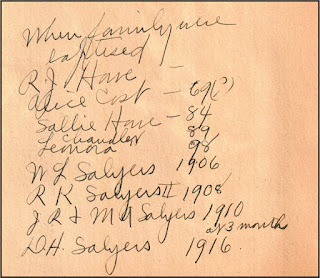 When family were
baptised
R. J. Hare —
Alice Cost — 69(?)
Sallie Hare — 84
Chandler 89
Leonora 98
W L Salyers 1906
R K Salyers II 1908
J R & M A Salyers 1910
at 3 month
D. H. Salyers 1916.